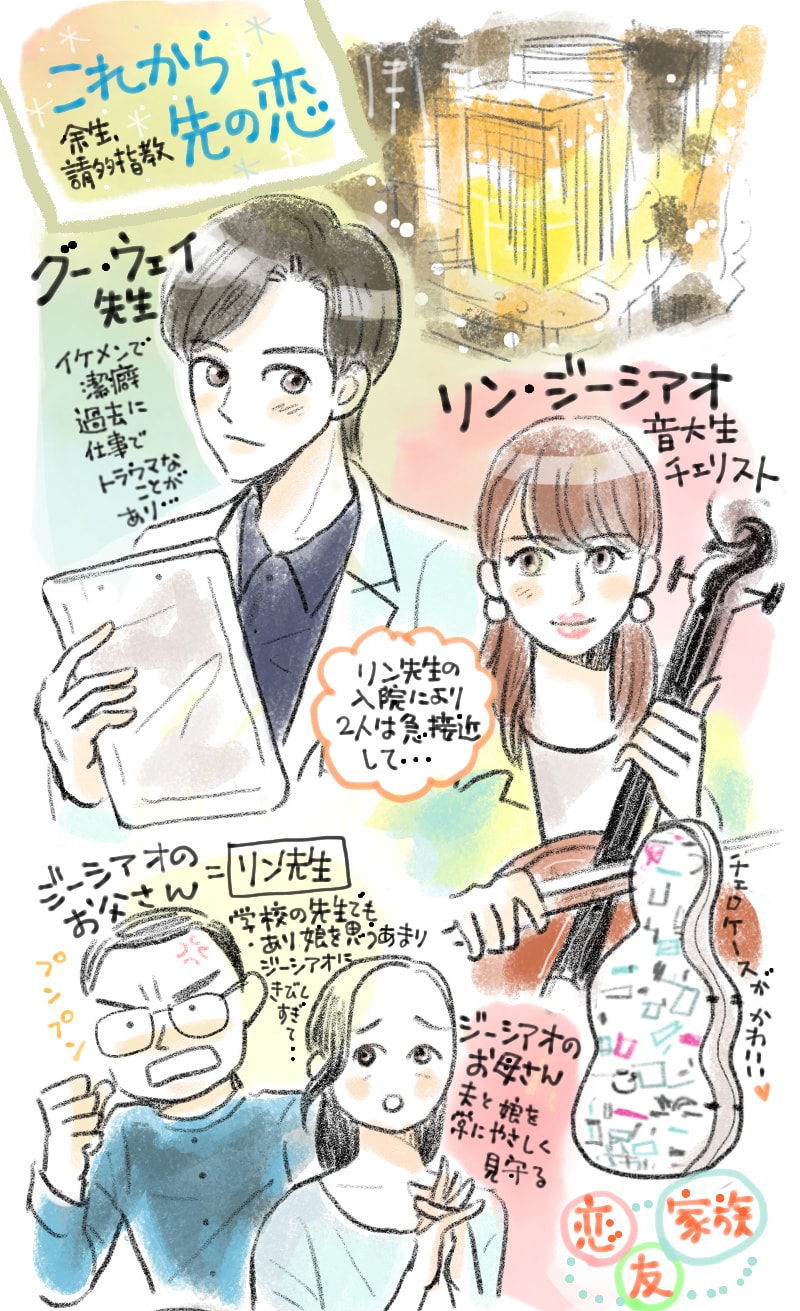 これから
先の恋
余生、
請多指教
グー・ウェイ
先生
イケメンで
潔癖
過去に
仕事で
トラウマな
ことが
あり…
リン・ジーシアオ
音大生
チェリスト
リン先生の
入院により
2人は急接近
して・・・
ジーシアオの
お父さん
=リン先生
学校の先生でも
あり娘を思うあまり
ジーシアオに
きびし
すぎて…
プンプン
ジーシアオの
お母さん
夫と娘を
常にやさしく
見守る
チェロケースが かわいい
恋
家族
友